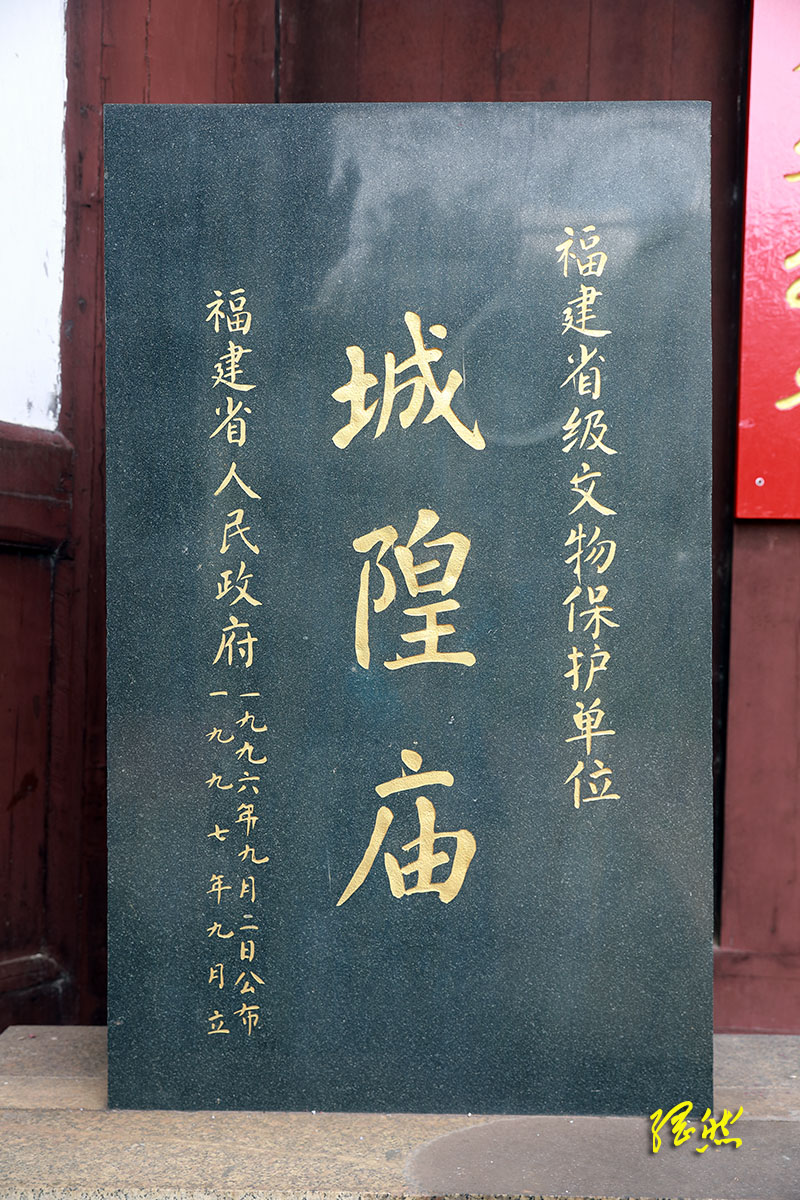 福建省级文物保护单位
城隍庙
福建省人民政府
一九九六年九月二日公布
一九九七年九月立